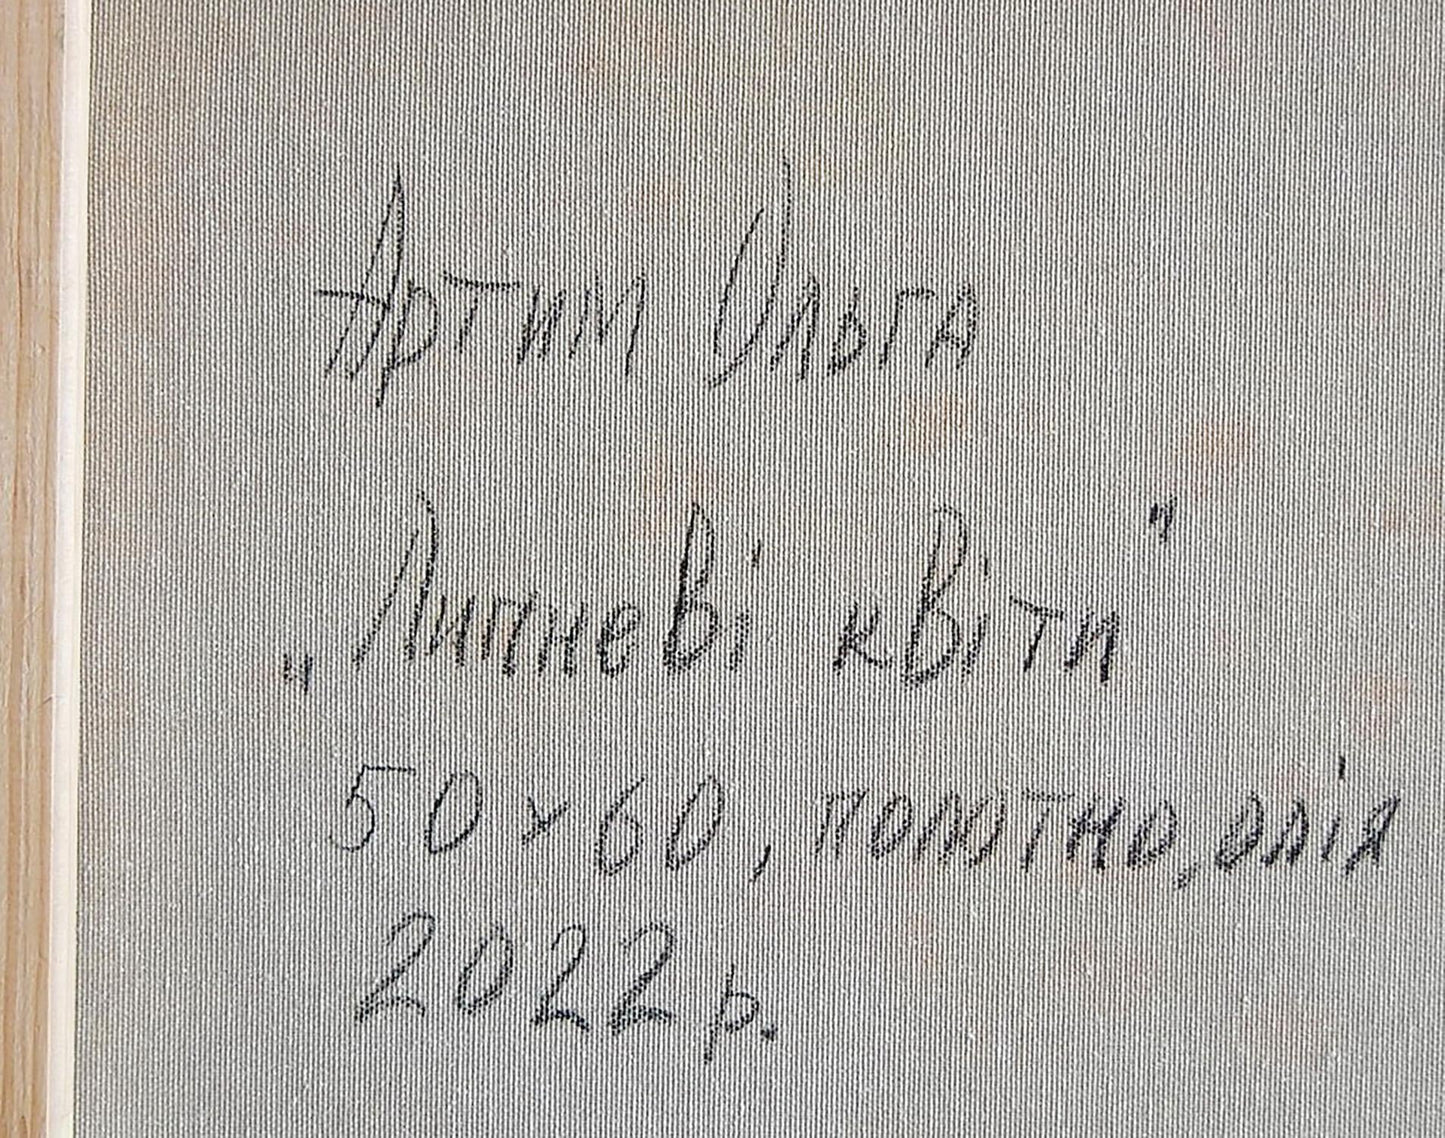 Артим Ольга
„Липневі квіти"
50×60, полотно, олія
2022 р.